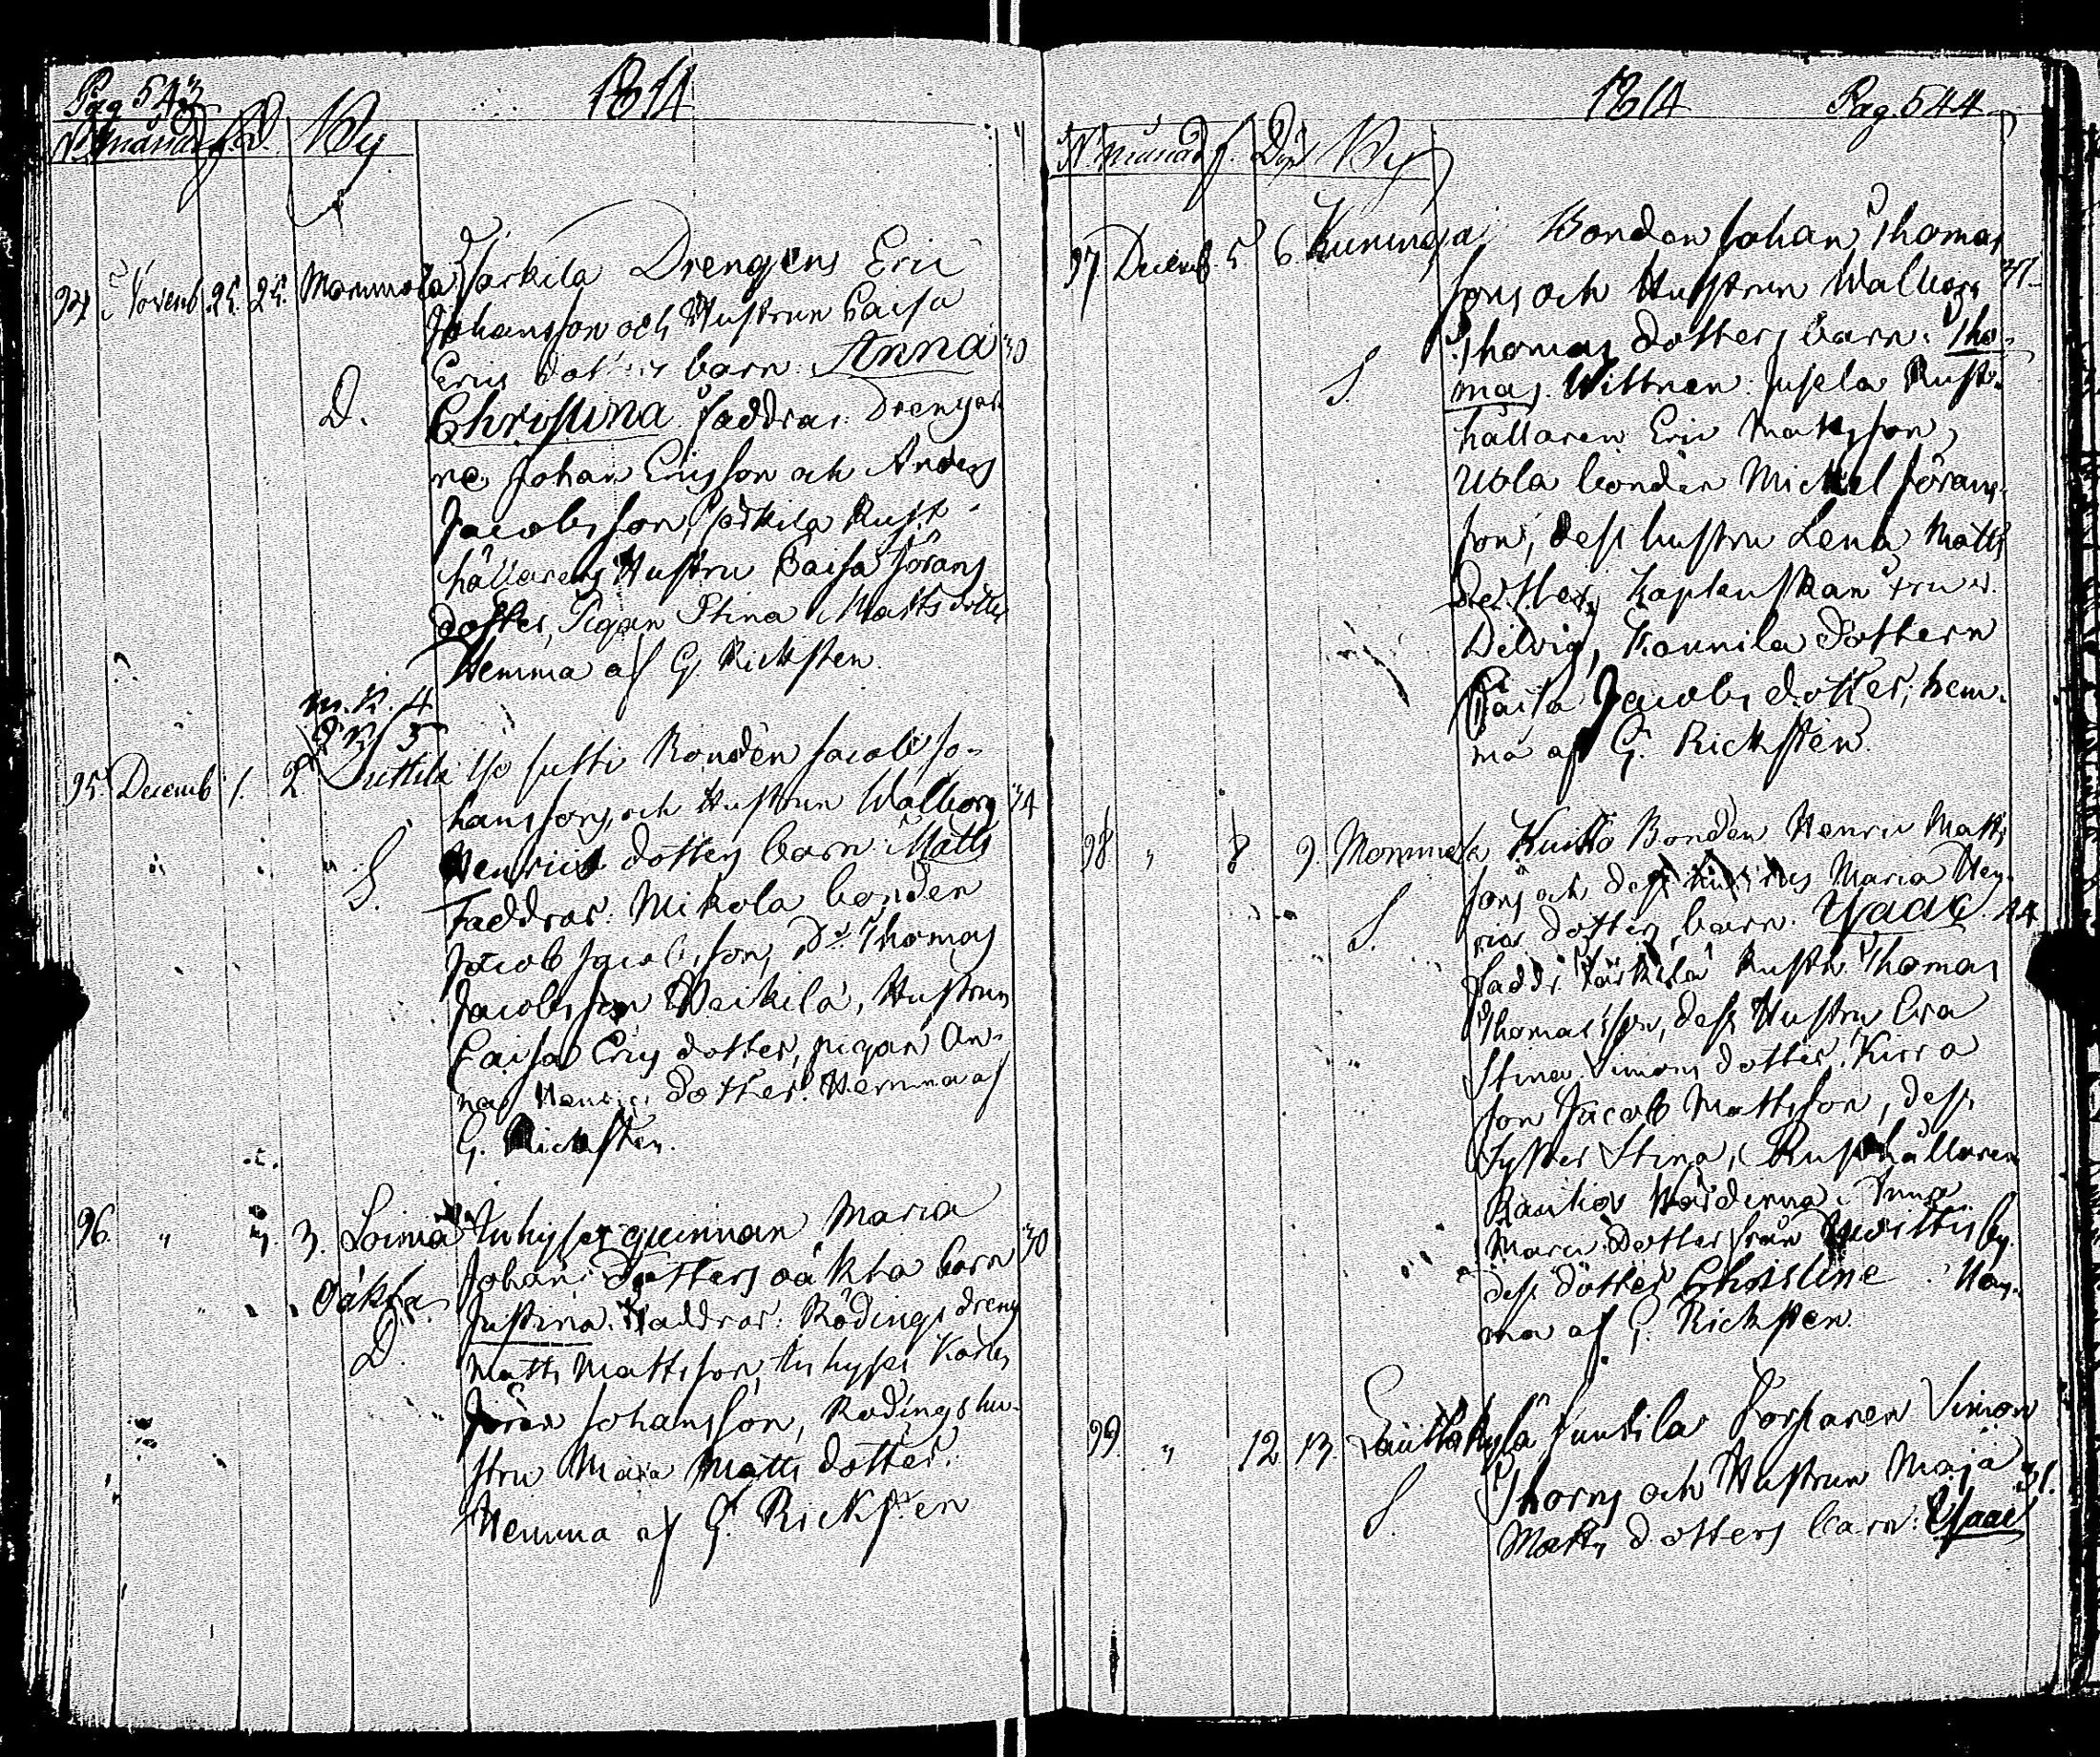 Pag 543
1814
N. månad f. D. By
94 Novemb. 25. 25. Mommola Sarkila Drengens Eric
Johansson och Hustrun Caisa
Erics dotters barn: Anna 30
D. Christina. Faddrar: Drengar
ne Johan Ericsson och Anders
Jacobsson, Särkila Rust-
hållarens Hustru Caisa Jörans
dotter, Pigan Stina Mattsdotter
Hemma af G. Ricksten.
4
5
95. Decemb 1. 2 Suttila Iso Jutti Bonden Jacob Jo-
hanssons, och Hustrun Walborg 34
Henrics dotters barn: Matts
S. Faddrar: Mikola bonden
Jacob Jacobsson, Do. Thomas
Jacobsson Heikilä, Hustrun
Caisa Erics dotter, pigan An-
na Henrics dotter. Hemma af
G. Ricksten.
96. " 3. Loima Inhyses quinnan Maria
Johans Dotters oäkta barn 30
oäkta Justina. Faddrar: Rödings dreng
D. Matts Mattsson, Inhyses Karlen
Jöran Johansson, Rödings hu-
stru Maria Matts dotter.
Hemma af G. Ricksten
1814 Pag. 544
N. månad f. Döpt By
97 Decemb 5 6 Kuninga Bonden Johan Thomas
sons och Hustrun Walborg 37.
Thomas dotters barn: Tho-
S. mas. Wittnen: Jusela Rust-
hållaren Eric Matsson,
Uola bonden Mickel Jörans-
son, dess hustru Lena Matts
dotter, Kaplanskan Fru
Hedvig, Kounila dottern
Caisa Jacobs dotter; hem-
ma af G. Ricksten.
98 " 8 9. Mommola Kuitto Bonden Henric Matts
sons och dess Hustrus Maria Hen-
S. rics dotters barn. Isaac. 44
Faddr: Särkilä Rusth. Thomas
Thomasson, dess Hustru Eva
Stina Simons dotter. Kirra
son Jacob Mattsson, dess
syster Stina, Rusthållaren
Rautios Wärdinna: Anna
Maria Dotter från
dess dotter Christine. Hem-
ma af G. Ricksten.
99 " 12 13. Lauttakylä Junkila Torparen Simon
Thoms och Hustrun Maja 31.
S. Matts dotters barn: Isaac